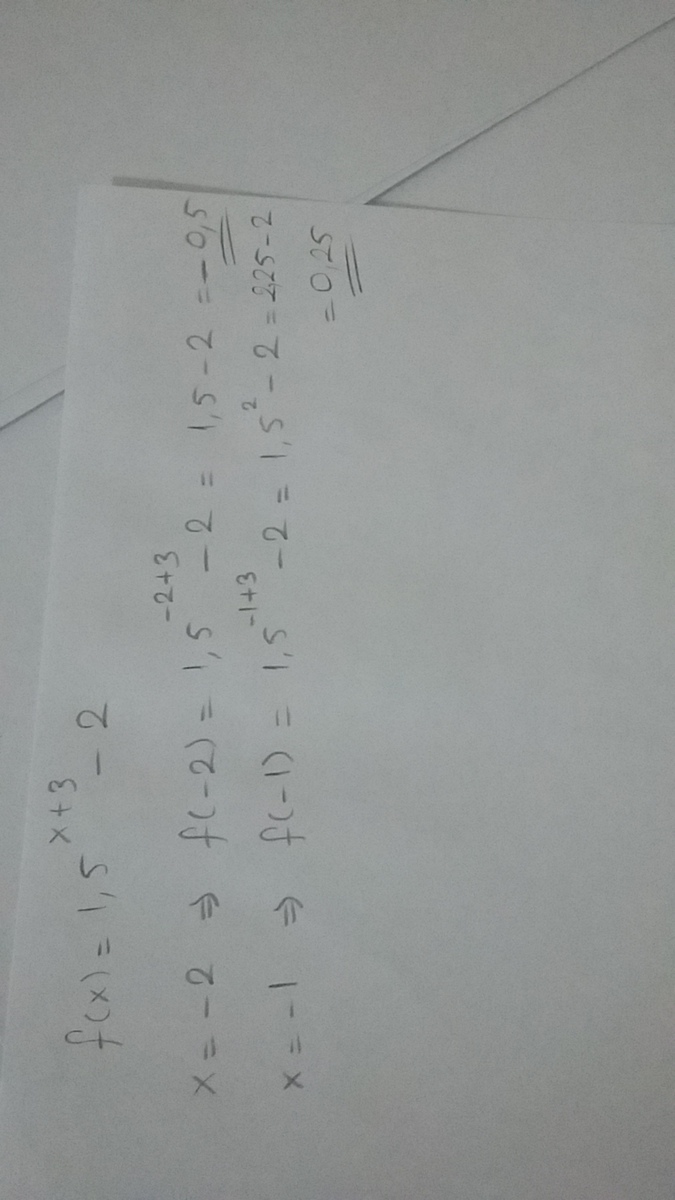 f(x) = 1,5^{x+3} - 2
x = -2 ⇒ f(-2) = 1,5^{-2+3} - 2 = 1,5 - 2 = -0,5
x = -1 ⇒ f(-1) = 1,5^{-1+3} - 2 = 1,5^{2} - 2 = 2,25 - 2
= 0,25